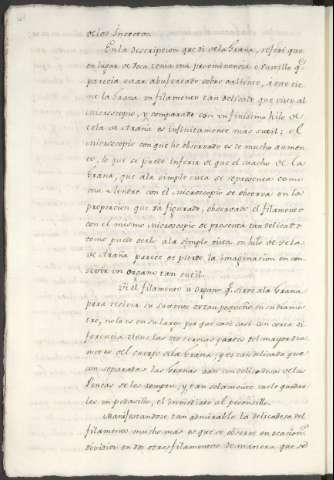 de los Insectos.
En la descripcion que di de la Grana, referi que
en lugar de boca tenia una prominencia o pezoncillo q.e
parecia estar abultado sobre artificio, á este tie
ne la Grana un filamento tan delicado que visto al
Microscopio, y comparado con un finisimo hilo de
tela de Araña es infinitamente mas sutil; el
Microscopio con que he observado es de mucho aumen
to, lo que se puede inferir de que el macho de la
Grana, que ala simple vista se representa como
con el Microscopio se observa en la
proporcion que va figurado, observado el filamento
con el mismo Microscopio se presenta tan delicado
como puede serlo ala simple vista un hilo de tela
de Araña parece se pierde la imaginacion en con
sevir un organo tan sutil.
Si el filamento u organo q.e sirve ala Grana
para recivir su sustento es tan pequeño en su diame
tro, no lo es en su largo por que casi casi con corta di
ferencia tiene las dos tercias partes del mayor diá
metro del cuerpo ala Grana, y es tan delicado que
con separar las Granas aun con delicadeza de las
Pencas se les rompe, y tan solamente suele quedar
les un pedacillo, el inmediato al pezoncillo.
Manifestandose tan admirable la delicadesa del
filamento mucho mas no que se observe en ocasion.s
dividido en dos otros filamentos de manera que se